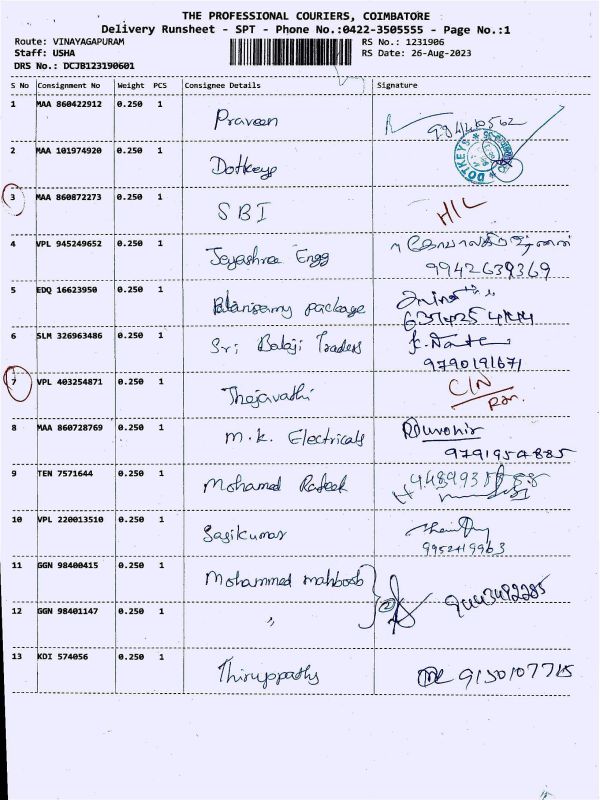 THE PROFESSIONAL COURIERS, COIMBATORE
Delivery Runsheet - SPT - Phone No.:0422-3505555 - Page No.:1
Route: VINAYAGAPURAM RS No.: 1231906
Staff: USHA RS Date: 26-Aug-2023
DRS No.: DCJB123190601
S No Consignment No Weight PCS Consignee Details Signature
1 MAA 860422912 0.250 1 Praveen
2 MAA 101974920 0.250 1 Dotkeys
DOTKEYS
3 MAA 860872273 0.250 1 SBI
4 VPL 945249652 0.250 1 Jeyashree Engg
9942639369
5 EDQ 16623950 0.250 1 package
6 SLM 326963486 0.250 1 Sri Balaji Traders
9790191671
7 VPL 403254871 0.250 1 Thejavathi
8 MAA 860728769 0.250 1 M.K. Electricals
9791954885
9 TEN 7571644 0.250 1 Mohamed Rafeek
10 VPL 220013510 0.250 1 Sasikumar
9952419963
11 GGN 98400415 0.250 1 Mohammed mahboob
12 GGN 98401147 0.250 1 "
13 KDI 574056 0.250 1 Thiruppathy 9150107715